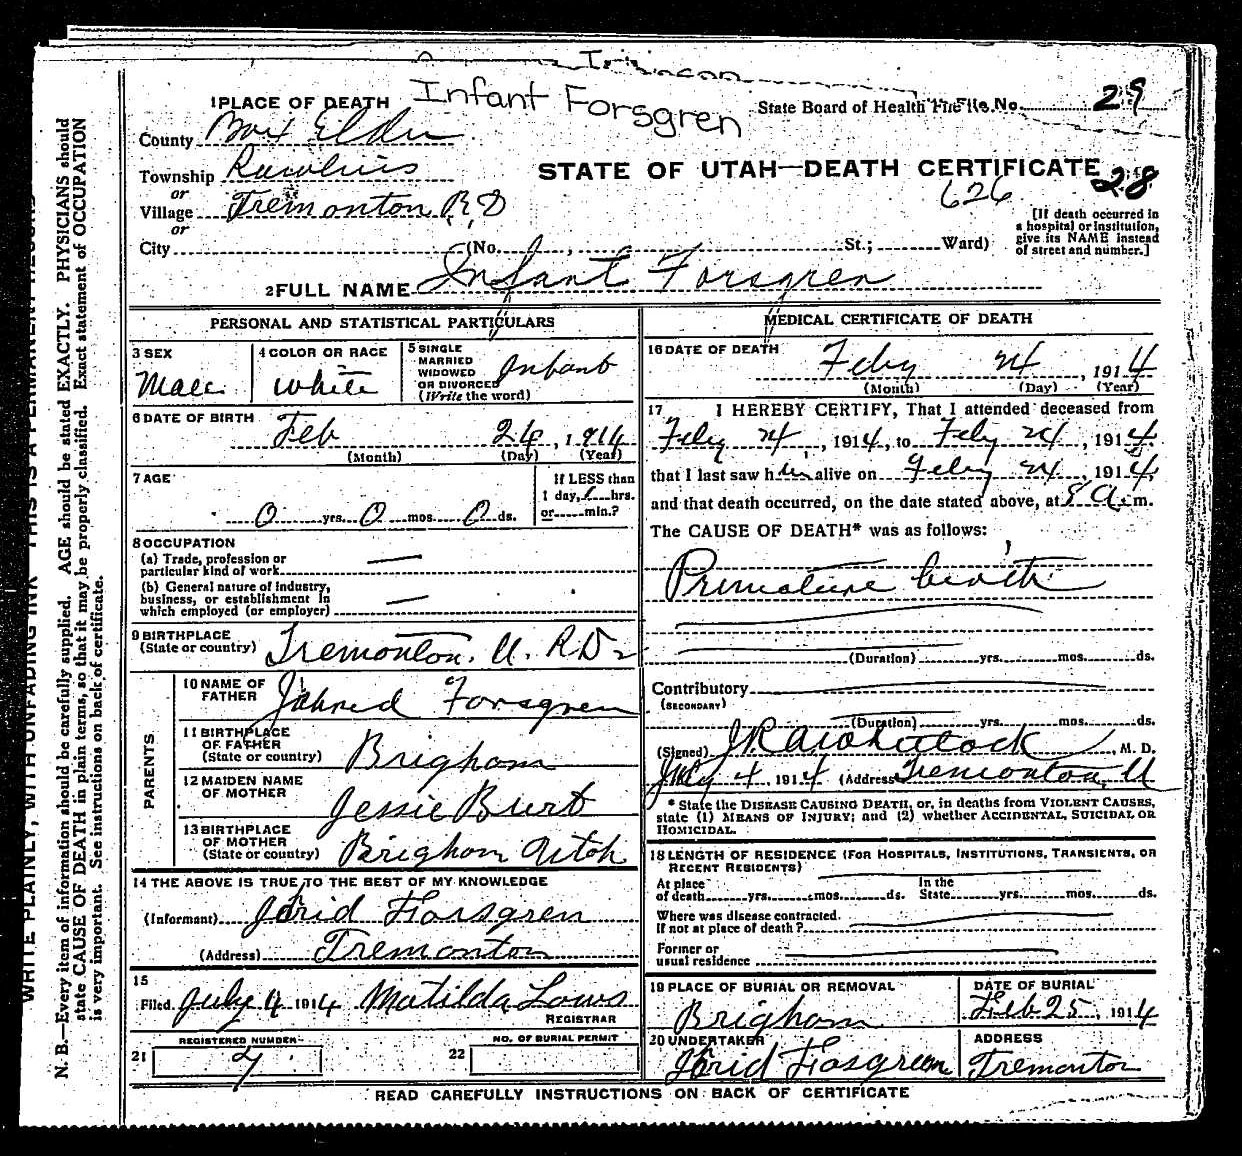 Infant Forsgren
1 PLACE OF DEATH
State Board of Health File No. 29
County Box Elder
STATE OF UTAH—DEATH CERTIFICATE
28
626
Township
or
Village Tremonton R D
or
City (No. , St.; Ward)
[If death occurred in
a hospital or institution,
give its NAME instead
of street and number.]
2 FULL NAME Infant Forsgren
PERSONAL AND STATISTICAL PARTICULARS
3 SEX
Male
4 COLOR OR RACE
White
5 SINGLE
MARRIED
WIDOWED
OR DIVORCED
(Write the word)
Infant
6 DATE OF BIRTH
Feb 24, 1914
(Month) (Day) (Year)
7 AGE
0 yrs. 0 mos. 0 ds.
If LESS than
1 day, hrs.
or min.?
8 OCCUPATION
(a) Trade, profession or
particular kind of work
(b) General nature of industry,
business, or establishment in
which employed (or employer)
9 BIRTHPLACE
(State or country) Tremonton. U. R D 2
PARENTS
10 NAME OF
FATHER Forsgren
11 BIRTHPLACE
OF FATHER
(State or country) Brigham
12 MAIDEN NAME
OF MOTHER
Jessie Burt
13 BIRTHPLACE
OF MOTHER
(State or country) Brigham Utah
14 THE ABOVE IS TRUE TO THE BEST OF MY KNOWLEDGE
(Informant) Forsgren
(Address) Tremonton
15
Filed July 4 1914 Matilda
REGISTRAR
REGISTERED NUMBER
21
NO. OF BURIAL PERMIT
22
MEDICAL CERTIFICATE OF DEATH
16 DATE OF DEATH
Feby 24, 1914
(Month) (Day) (Year)
17 I HEREBY CERTIFY, That I attended deceased from
Feby 24, 1914, to Feby 24, 1914,
that I last saw him alive on Feby 24, 1914,
and that death occurred, on the date stated above, at 8 a. m.
The CAUSE OF DEATH* was as follows:
Premature birth
(Duration) yrs. mos. ds.
Contributory
(SECONDARY)
(Duration) yrs. mos. ds.
(Signed) , M. D.
July 4 1914 (Address) Tremonton, U
* State the DISEASE CAUSING DEATH, or, in deaths from VIOLENT CAUSES,
state (1) MEANS OF INJURY; and (2) whether ACCIDENTAL, SUICIDAL OR
HOMICIDAL.
18 LENGTH OF RESIDENCE (FOR HOSPITALS, INSTITUTIONS, TRANSIENTS, OR
RECENT RESIDENTS)
At place
of death yrs. mos. ds.
In the
State yrs. mos. ds.
Where was disease contracted.
If not at place of death?
Former or
usual residence
19 PLACE OF BURIAL OR REMOVAL
Brigham
DATE OF BURIAL
Feb 25, 1914
20 UNDERTAKER
Forsgreen
ADDRESS
Tremonton
READ CAREFULLY INSTRUCTIONS ON BACK OF CERTIFICATE
WRITE PLAINLY, WITH UNFADING INK—THIS IS A PERMANENT RECORD
N. B.—Every item of information should be carefully supplied. AGE should be stated EXACTLY. PHYSICIANS should
state CAUSE OF DEATH in plain terms, so that it may be properly classified. Exact statement of OCCUPATION
is very important. See instructions on back of certificate.